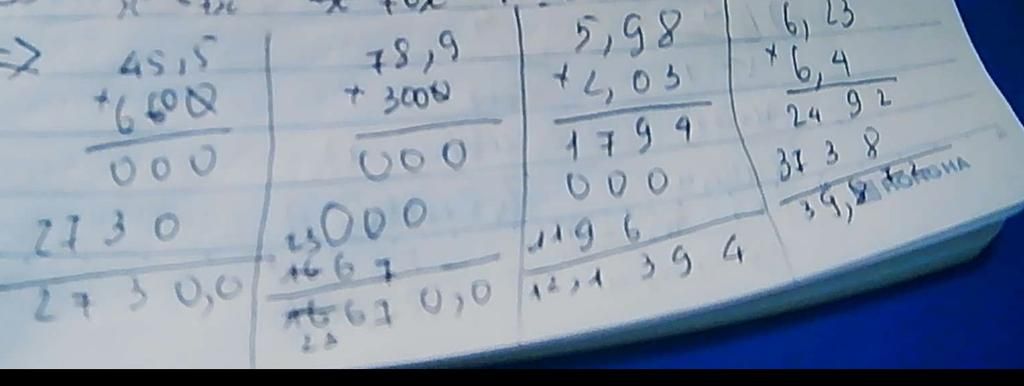 => 45,5
+600
000
2730
2730,0
78,9
+300
000
000
2367
670,0
5,98
+2,03
1794
000
1196
12,1394
6,23
+6,4
2492
3738
39,8